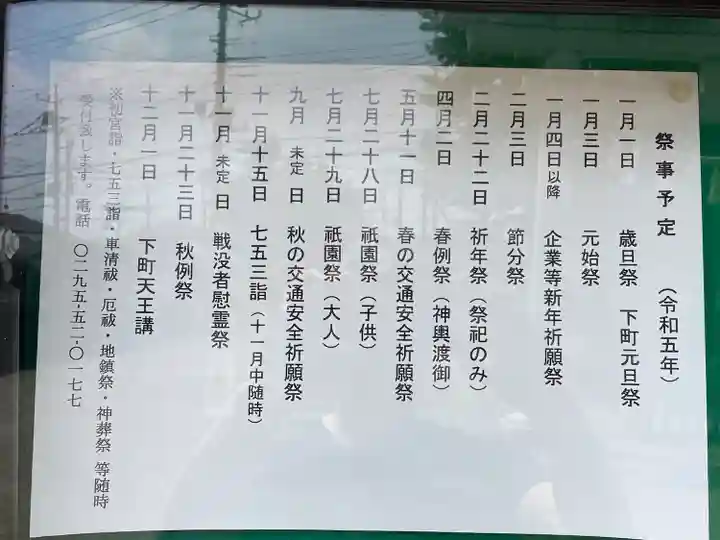 祭事予定　（令和五年）
一月一日　歳旦祭　下町元旦祭
一月三日　元始祭
一月四日以降　企業等新年祈願祭
二月三日　節分祭
二月二十二日　祈年祭（祭祀のみ）
四月二日　春例祭（神輿渡御）
五月十一日　春の交通安全祈願祭
七月二十八日　祇園祭（子供）
七月二十九日　祇園祭（大人）
九月　未定　日　秋の交通安全祈願祭
十一月十五日　七五三詣（十一月中随時）
十一月　未定　日　戦没者慰霊祭
十一月二十三日　秋例祭
十二月一日　下町天王講
※初宮詣・七五三詣・車清祓・厄祓・地鎮祭・神葬祭 等随時
受付致します。電話　〇二九五-五二-〇一七七